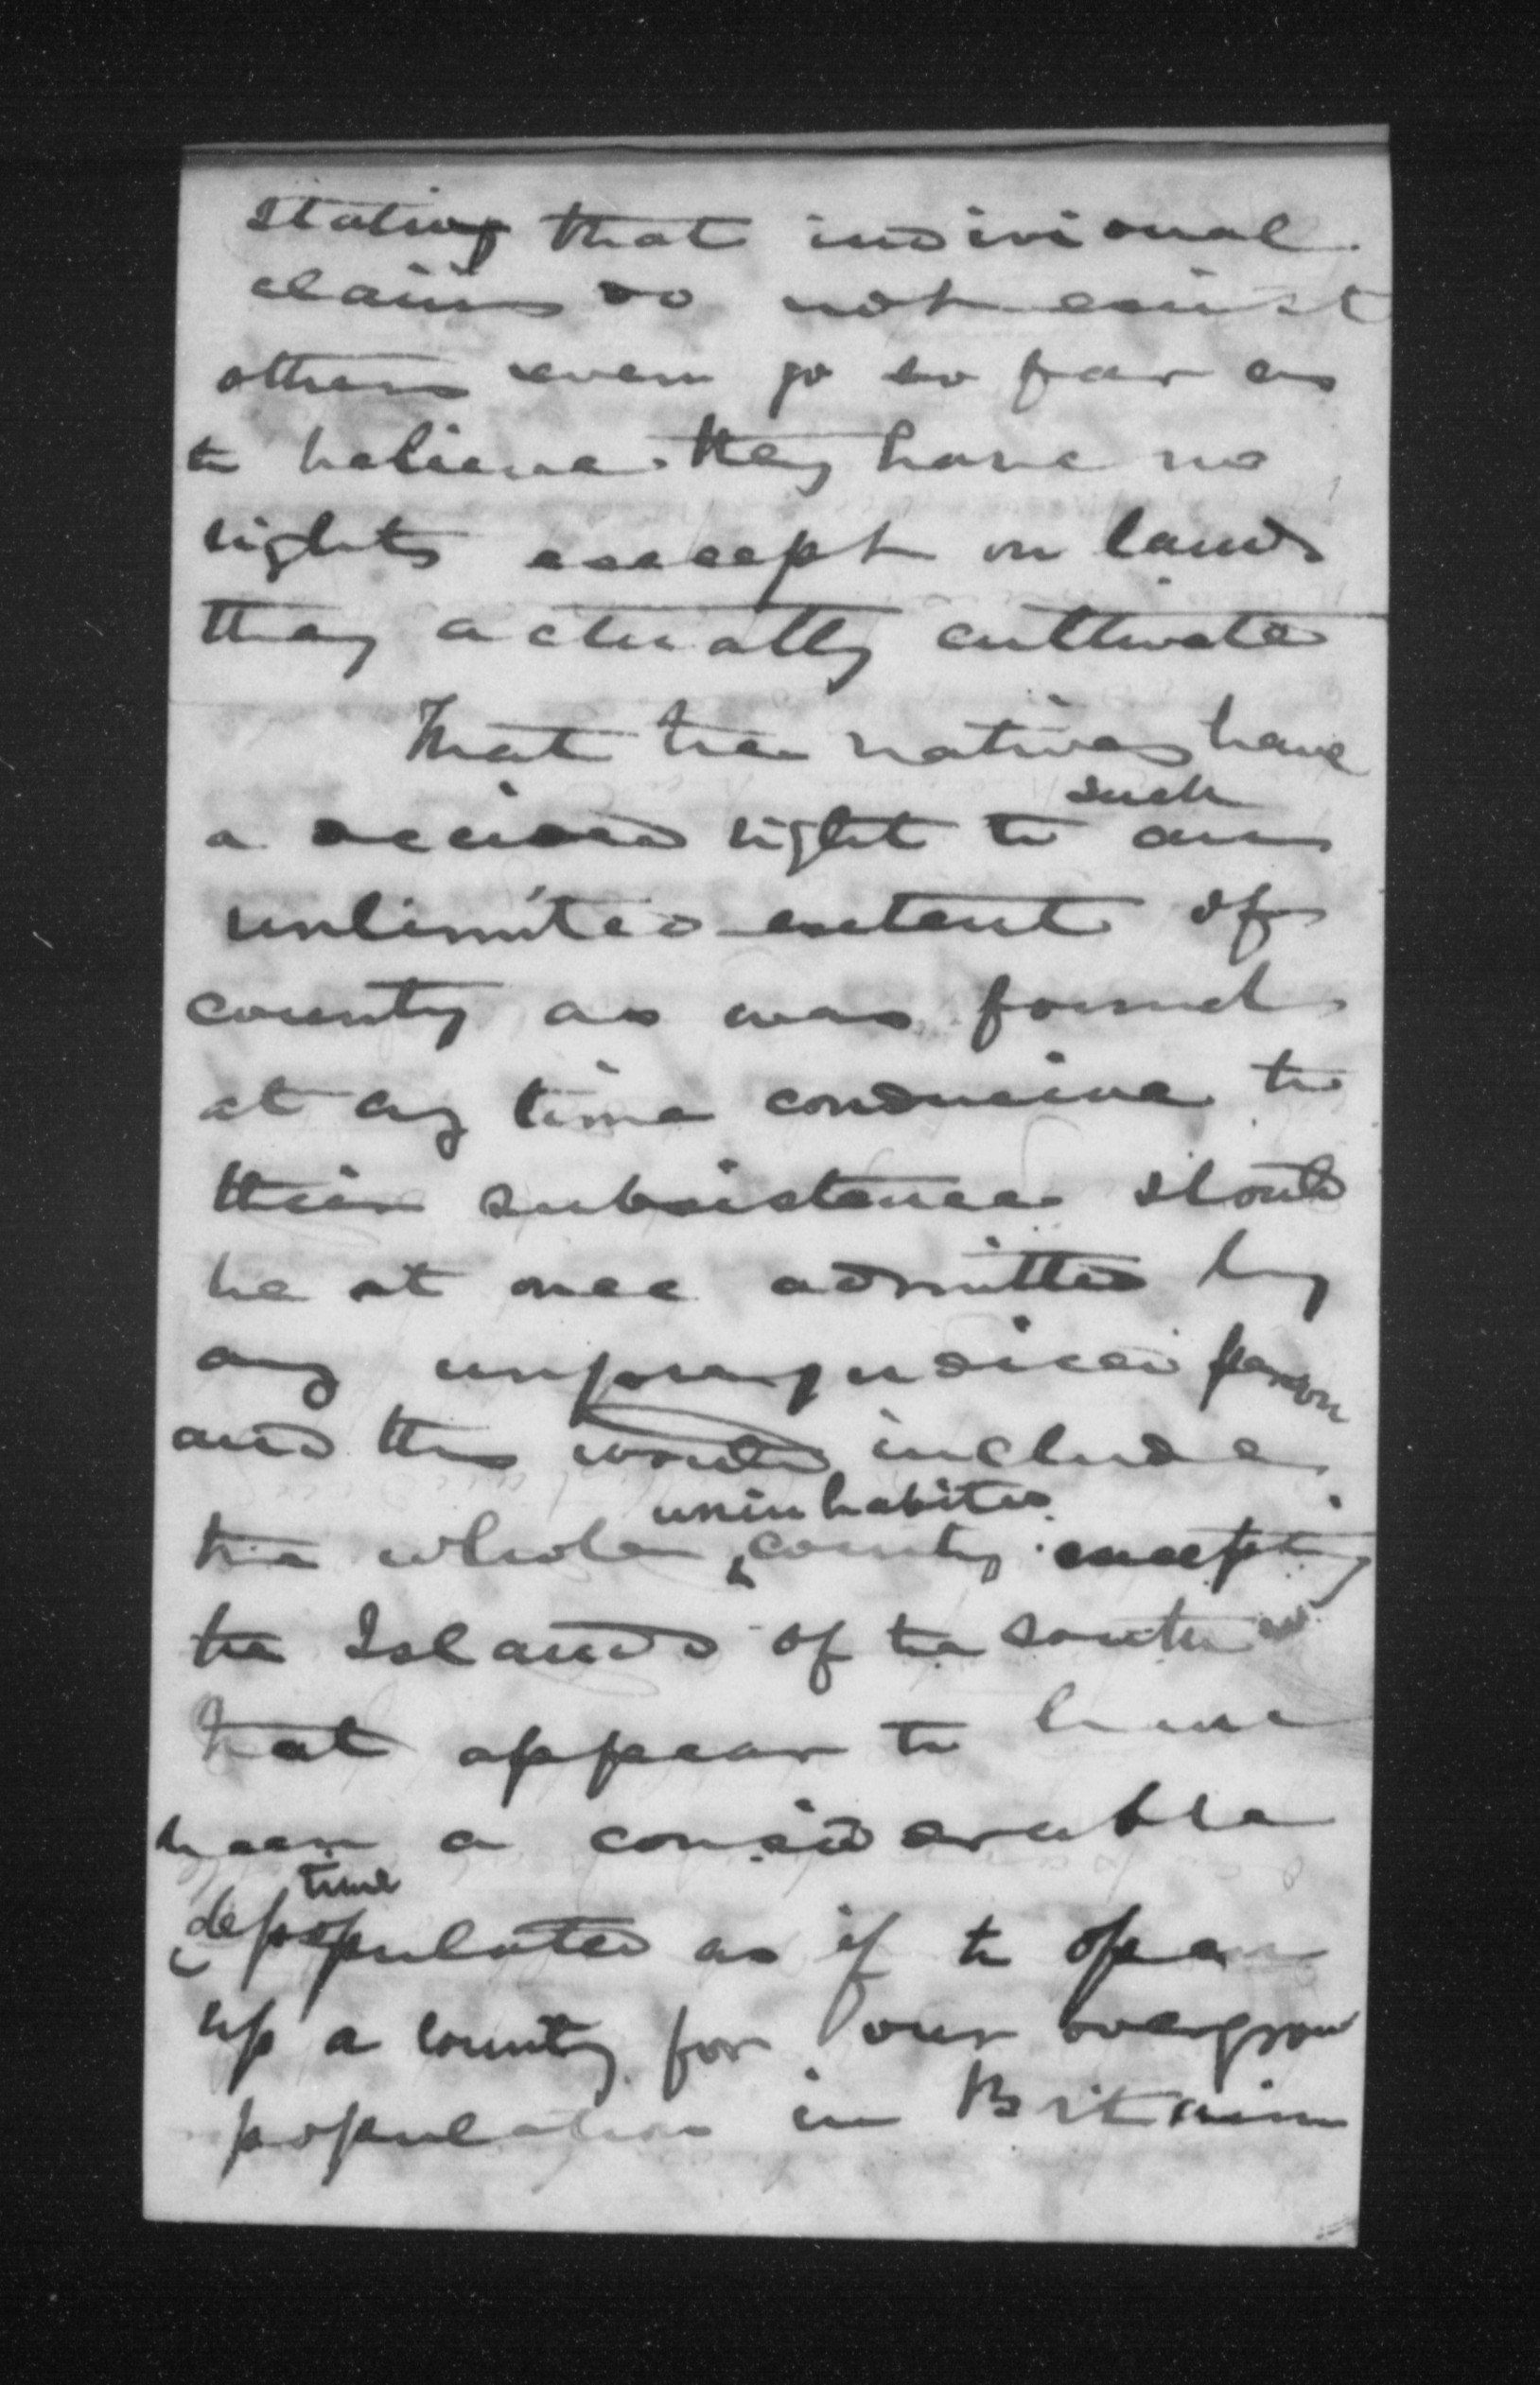 stating that individual
claims do not exist
others even go so far as
to believe they have no
rights except on lands
they actually cultivate
That the natives have
such
a decided right to an
unlimited extent of
county as was found
at any time conducive to
their subsistence should
be at once admitted by
any unprejudiced person
and this would include
uninhabited
the whole county excepting
the Islands of the south
that appear to have
been a considerable
time
depopulated as if to open
up a county for our overgrown
population in Britain